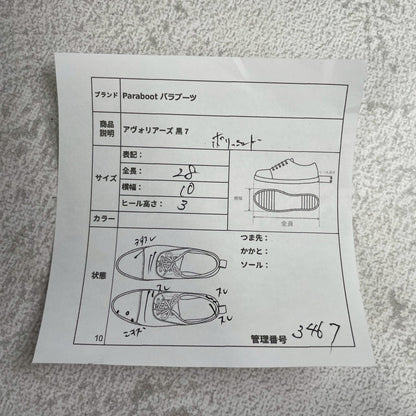 ブランド Paraboot パラブーツ
商品説明 アヴォリアーズ 黒 7
サイズ
表記：
全長： 28
横幅： 10
ヒール高さ： 3
横幅
全長
カラー
状態
つま先：
かかと：
ソール：
スレ
スレ
スレ
10
管理番号 3467